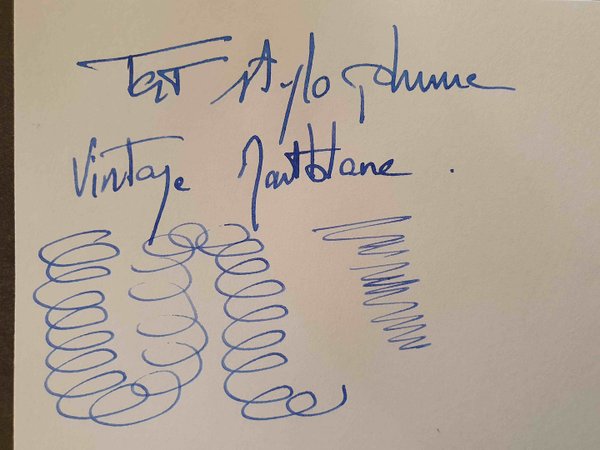 Test stylo plume
Vintage Montblanc.